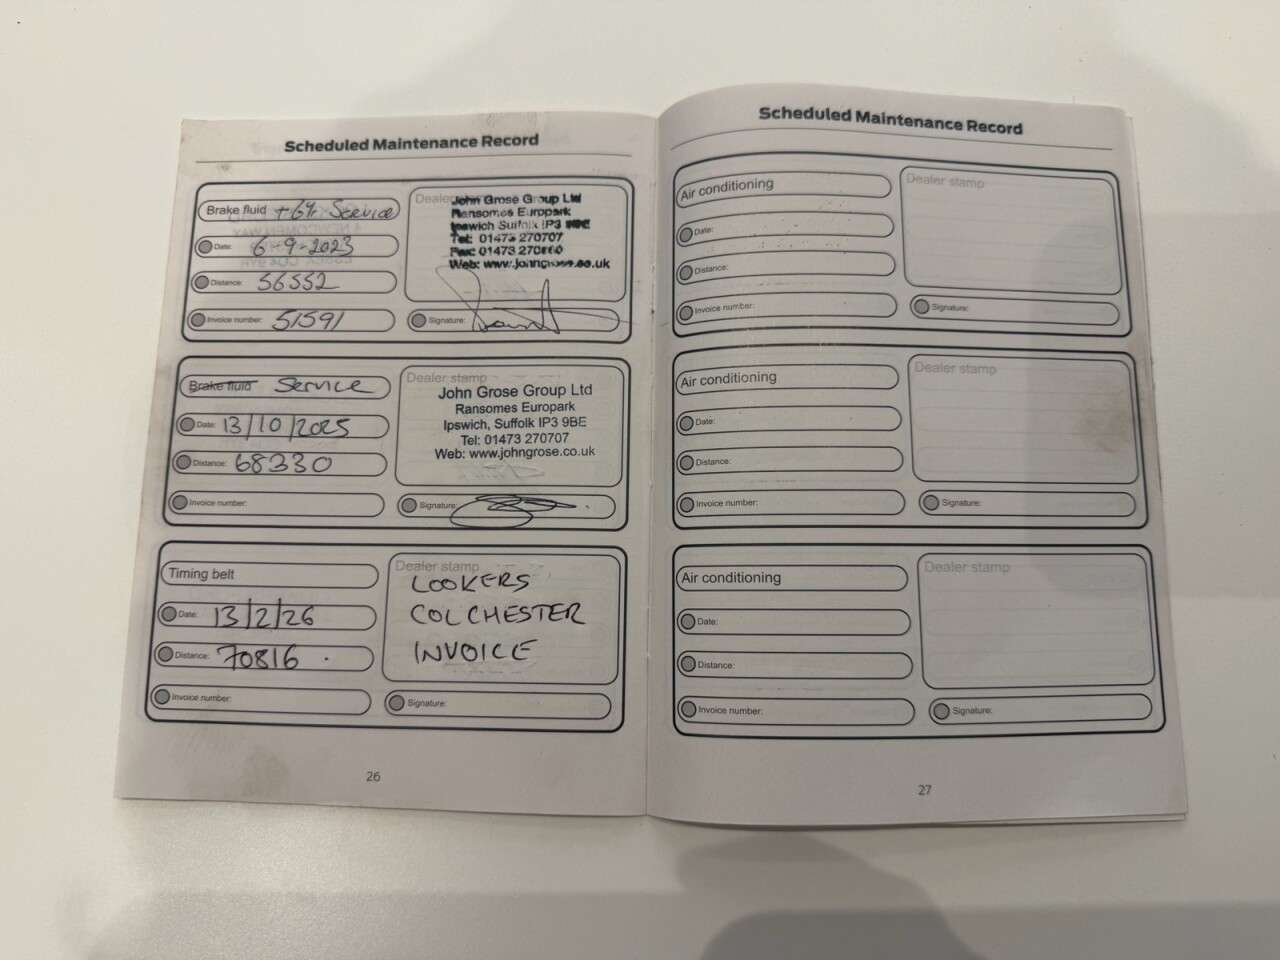 Scheduled Maintenance Record
Brake fluid + 6yr Service
Date: 6-9-2023
Distance: 56552
Invoice number: 51591
Dealer
John Grose Group Ltd
Ransomes Europark
Ipswich Suffolk IP3
Tel: 01473 270707
Fax: 01473
Web: www.johngrose.co.uk
Signature:
Brake fluid Service
Date: 13/10/2025
Distance: 68330
Invoice number:
Dealer stamp
John Grose Group Ltd
Ransomes Europark
Ipswich, Suffolk IP3 9BE
Tel: 01473 270707
Web: www.johngrose.co.uk
Signature:
Timing belt
Date: 13/2/26
Distance: 70816.
Invoice number:
Dealer stamp
LOOKERS
COLCHESTER
INVOICE
Signature:
26
Scheduled Maintenance Record
Air conditioning
Date:
Distance:
Invoice number:
Dealer stamp
Signature:
Air conditioning
Date:
Distance:
Invoice number:
Dealer stamp
Signature:
Air conditioning
Date:
Distance:
Invoice number:
Dealer stamp
Signature:
27